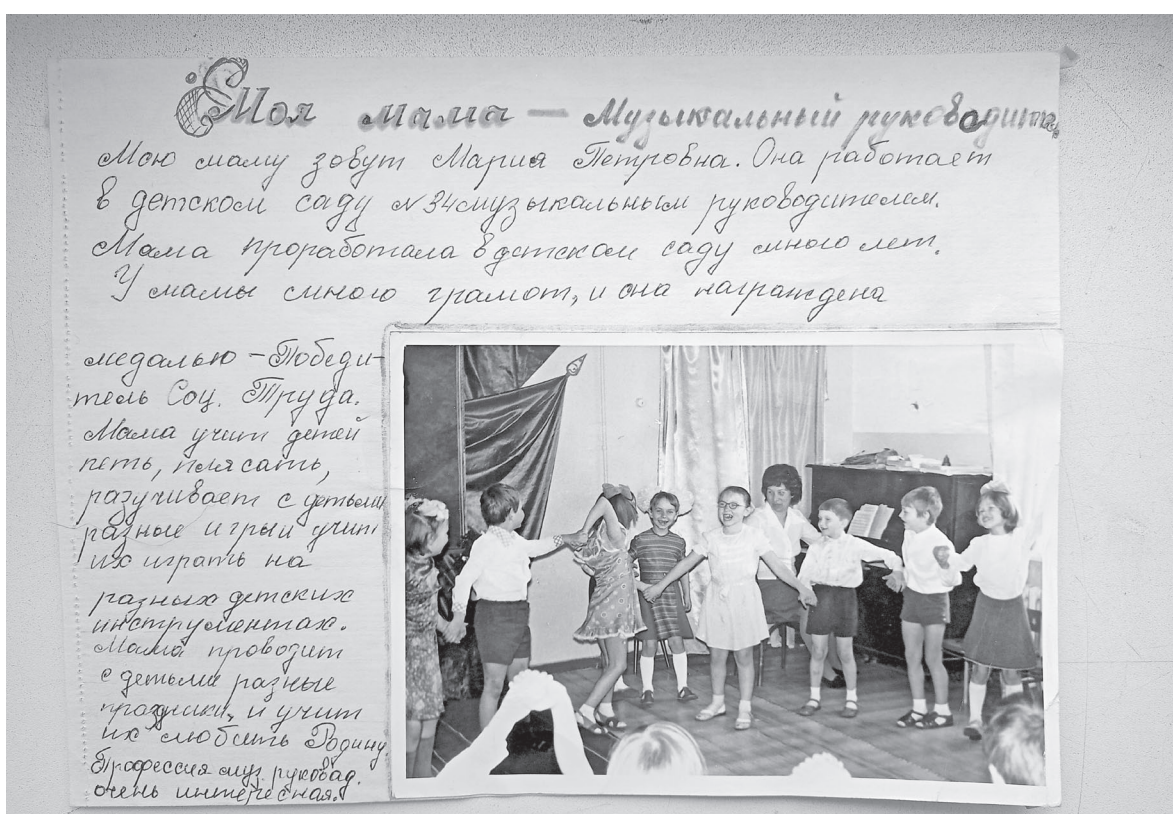 Моя мама — Музыкальный руководитель
Мою маму зовут Мария Петровна. Она работает
в детском саду № 34 музыкальным руководителем.
Мама проработала в детском саду много лет.
У мамы много грамот, и она награждена
медалью – Победи-
тель Соц. Труда.
Мама учит детей
петь, плясать,
разучивает с детьми
разные игры и учит
их играть на
разных детских
инструментах.
Мама проводит
с детьми разные
праздники, и учит
их любить Родину.
Профессия муз. руковод.
очень интересная.